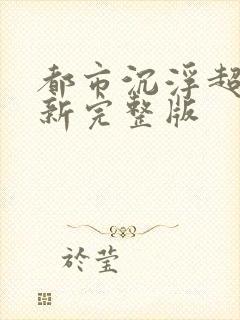 都市沉浮超
新完整版
於莹